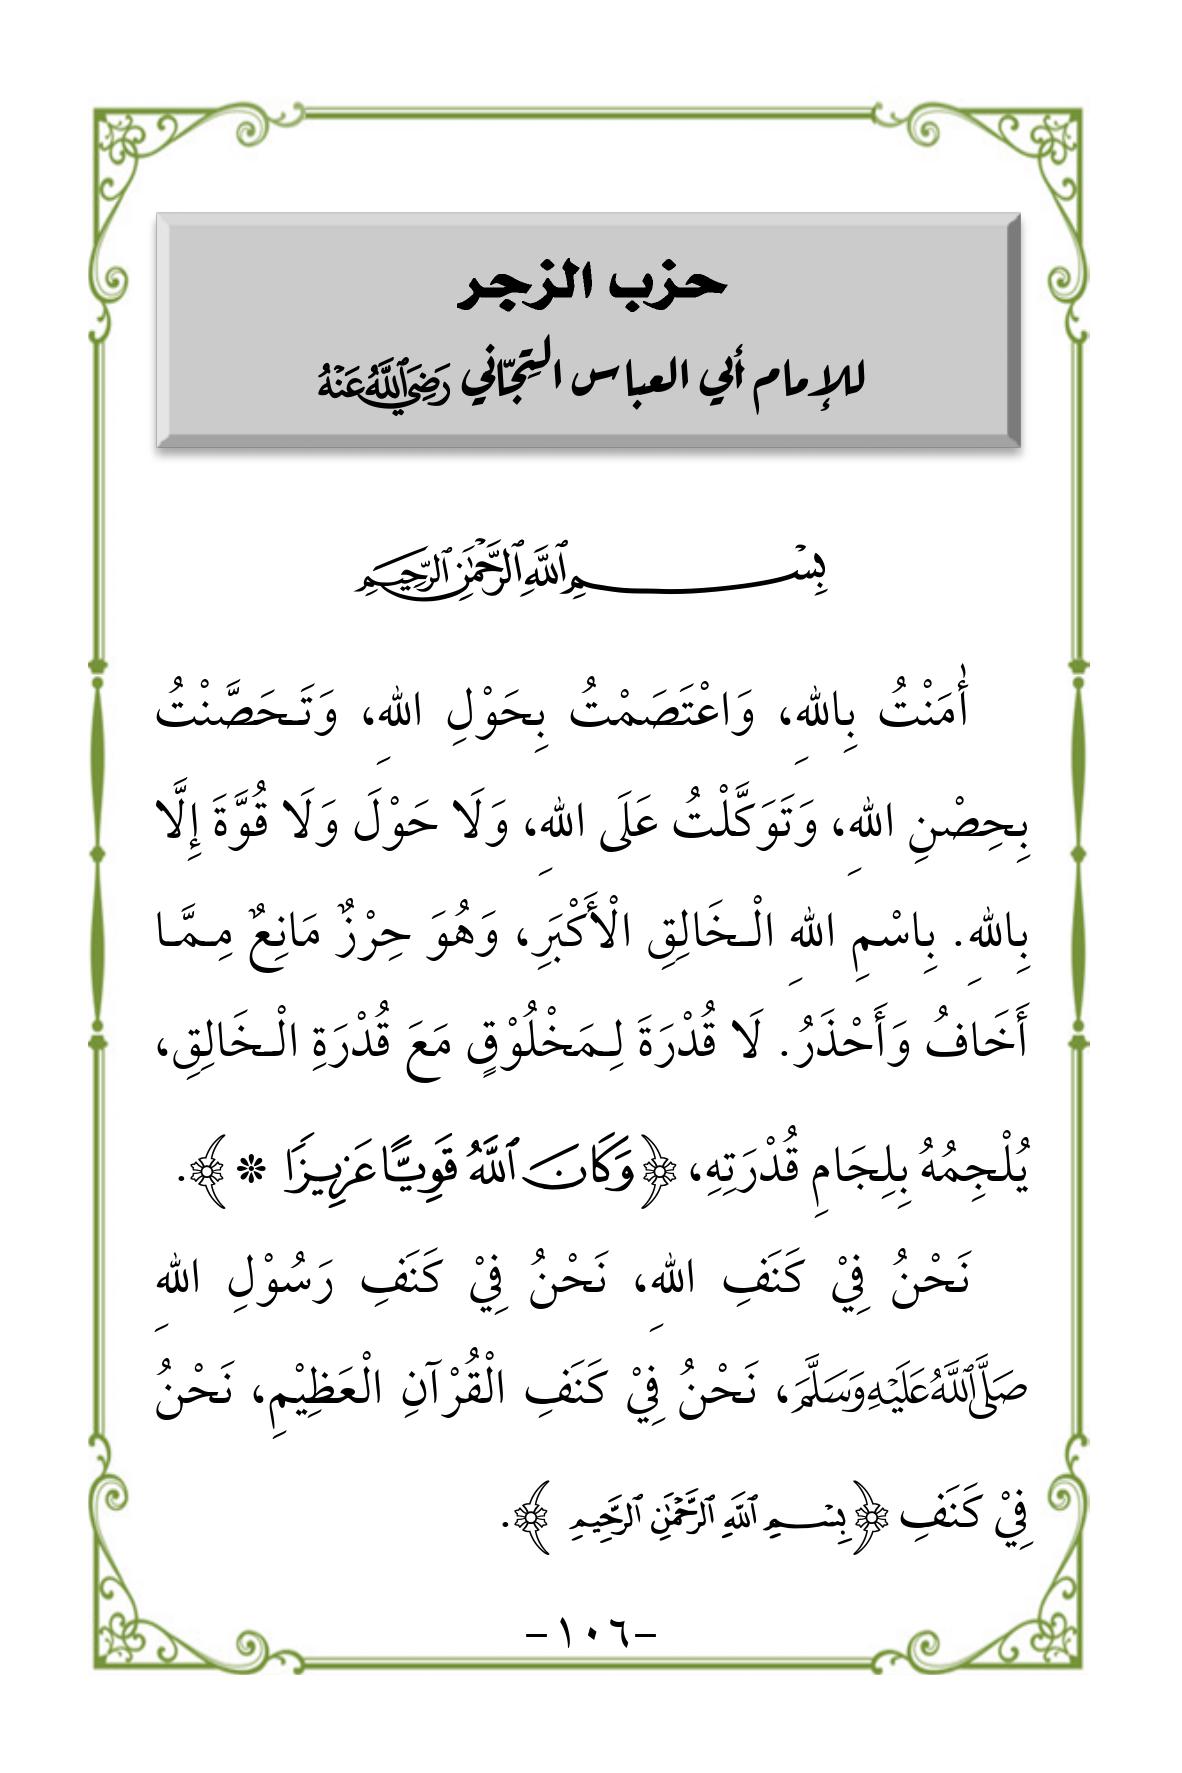 حزب الزجر
للإمام أبي العباس التِجّاني رَضِيَ ٱللَّهُ عَنْهُ
بِسْمِ ٱللَّهِ ٱلرَّحْمَٰنِ ٱلرَّحِيمِ
أَٰمَنْتُ بِاللهِ، وَاعْتَصَمْتُ بِحَوْلِ اللهِ، وَتَـحَصَّنْتُ
بِحِصْنِ اللهِ، وَتَوَكَّلْتُ عَلَى اللهِ، وَلَا حَوْلَ وَلَا قُوَّةَ إِلَّا
بِاللهِ. بِاسْمِ اللهِ الْـخَالِقِ الْأَكْبَرِ، وَهُوَ حِرْزٌ مَانِعٌ مِـمَّـا
أَخَافُ وَأَحْذَرُ. لَا قُدْرَةَ لِـمَخْلُوْقٍ مَعَ قُدْرَةِ الْـخَالِقِ،
يُلْجِمُهُ بِلِجَامِ قُدْرَتِهِ، ﴿وَكَانَ ٱللَّهُ قَوِيًّا عَزِيزًا ۞﴾.
نَحْنُ فِيْ كَنَفِ اللهِ، نَحْنُ فِيْ كَنَفِ رَسُوْلِ اللهِ
صَلَّى ٱللَّهُ عَلَيْهِ وَسَلَّمَ، نَحْنُ فِيْ كَنَفِ الْقُرْآنِ الْعَظِيْمِ، نَحْنُ
فِيْ كَنَفِ ﴿بِسْمِ ٱللَّهِ ٱلرَّحْمَٰنِ ٱلرَّحِيمِ ﴾.
-١٠٦-